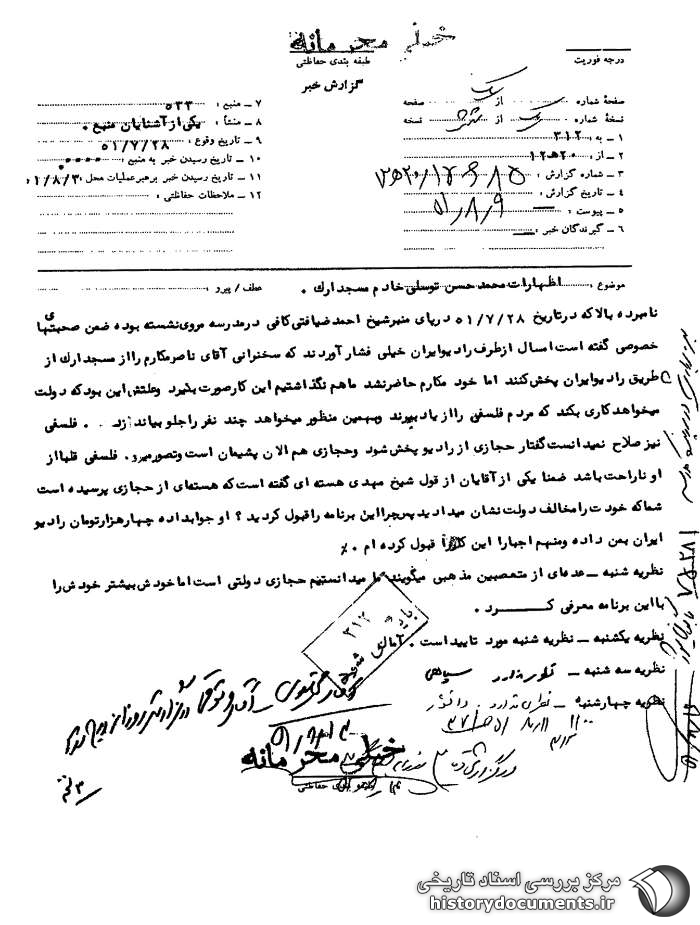 خیلی محرمانه
درجه فوریت
طبقه بندی حفاظتی
گزارش خبر
صفحهٔ شماره یک از صفحه
نسخهٔ شماره یک از شش نسخه
۱ ــ به : ۳۱۲
۲ ــ از : ۲۰ هـ ۱۲
۳ ــ شماره گزارش :
۴ ــ تاریخ گزارش : ۵۱/۸/۹
۵ ــ پیوست : ــ
۶ ــ گیرندگان خبر : ــ
۷ ــ منبع : ۵۳۳
۸ ــ منشأ : یکی از آشنایان منبع .
۹ ــ تاریخ وقوع : ۵۱/۷/۲۸
۱۰ ــ تاریخ رسیدن خبر به منبع :
۱۱ ــ تاریخ رسیدن خبر برهبرعملیات محل : ۵۱/۸/۳
۱۲ ــ ملاحظات حفاظتی :
موضوع : اظهارات محمد حسن توسلی خادم مسجد ارك .
عطف / پیرو :
نامبرده بالا که در تاریخ ۵۱/۷/۲۸ در پای منبر شیخ احمد ضیافتی کافی در مدرسه مروی نشسته بوده ضمن صحبتهای
خصوصی گفته است امسال از طرف رادیو ایران خیلی فشار آوردند که سخنرانی آقای ناصر مکارم را از مسجد ارك از
طریق رادیو ایران پخش کنند اما خود مکارم حاضر نشد ما هم نگذاشتیم این کار صورت بگیرد وعلتش این بود که دولت
میخواهد کاری بکند که مردم فلسفی را از یاد ببرند وبهمین منظور میخواهد چند نفر را جلو بیاندازد . . فلسفی
نیز صلاح نمیدانست گفتار حجازی از رادیو پخش شود وحجازی هم الان پشیمان است وتصور میرود فلسفی قلبا از
او ناراحت باشد ضمنا یکی از آقایان از قول شیخ مهدی هسته ای گفته است که هسته‌ای از حجازی پرسیده است
شما که خودت را مخالف دولت نشان میدادید پس چرا این برنامه را قبول کردید ؟ او جواب داده چهار هزار تومان رادیو
ایران بمن داده ومنهم اجبارا این کار را قبول کرده ام .٪
نظریه شنبه ــ عده‌ای از متعصبین مذهبی میگویند ما میدانستیم حجازی دولتی است اما خودش بیشتر خودش را
با این برنامه معرفی کرد .
نظریه یکشنبه ــ نظریه شنبه مورد تایید است .
نظریه سه شنبه ــ نظری ندارد
نظریه چهارشنبه ــ نظری ندارد .
۳۱۲
خیلی محرمانه
طبقه بندی حفاظتی
مرکز بررسی اسناد تاریخی
historydocuments.ir